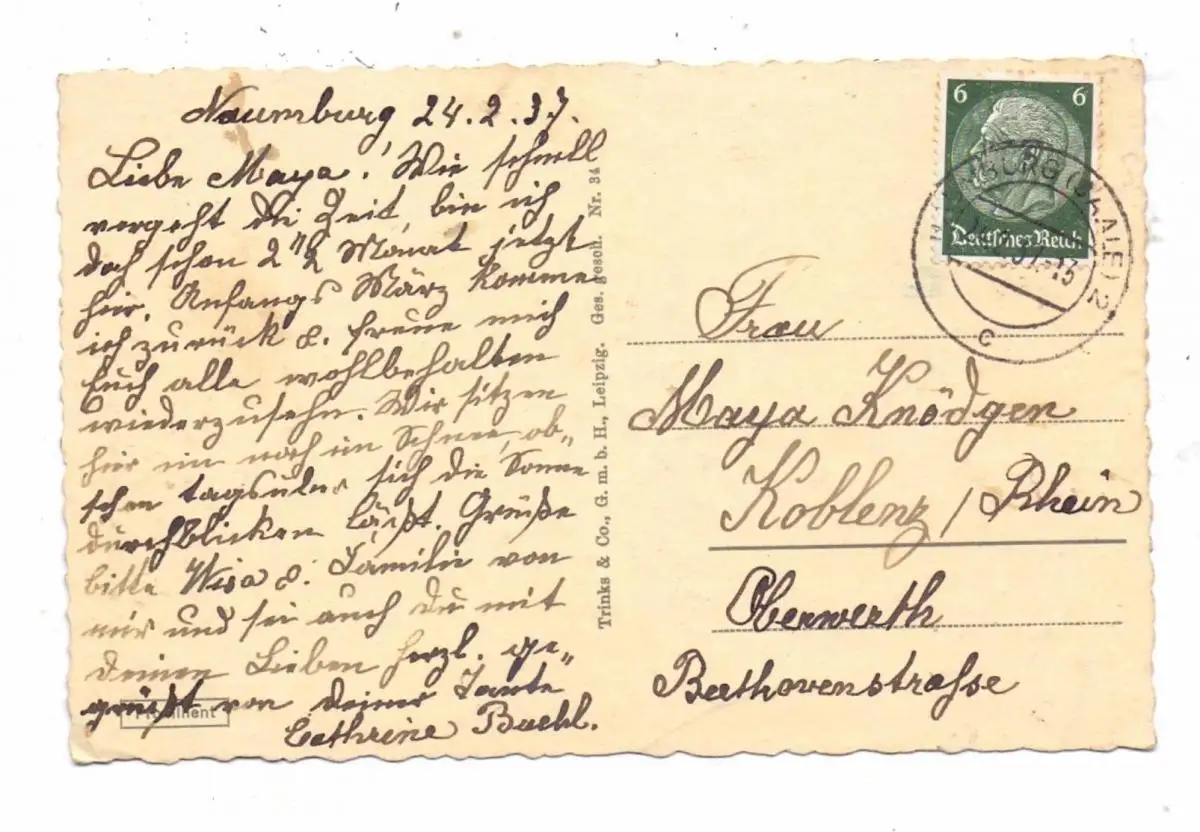 Naumburg 24.2.37.
Liebe Maya! Wie schnell
vergeht die Zeit, bin ich
doch schon 2 1/2 Monat jetzt
hier. Anfangs März komme
ich zurück u. freue mich
Euch alle wohlbehalten
wiederzusehn. Wir sitzen
hier im noch im Schnee, ob-
schon tagsüber sich die Sonne
durchblicken läßt. Grüße
bitte u. Familie von
mir und sei auch Du mit
deinen Lieben herzl. ge-
grüßt von deiner Tante
Cathrine Buehl.
Prominent
Trinks & Co., G. m. b. H., Leipzig. Ges. gesch. Nr. 34
6 6
Deutsches Reich
BURG (SAALE) 2
37.-13
c
Frau
Maya Knödgen
Koblenz / Rhein
Oberwerth
Beethovenstrasse